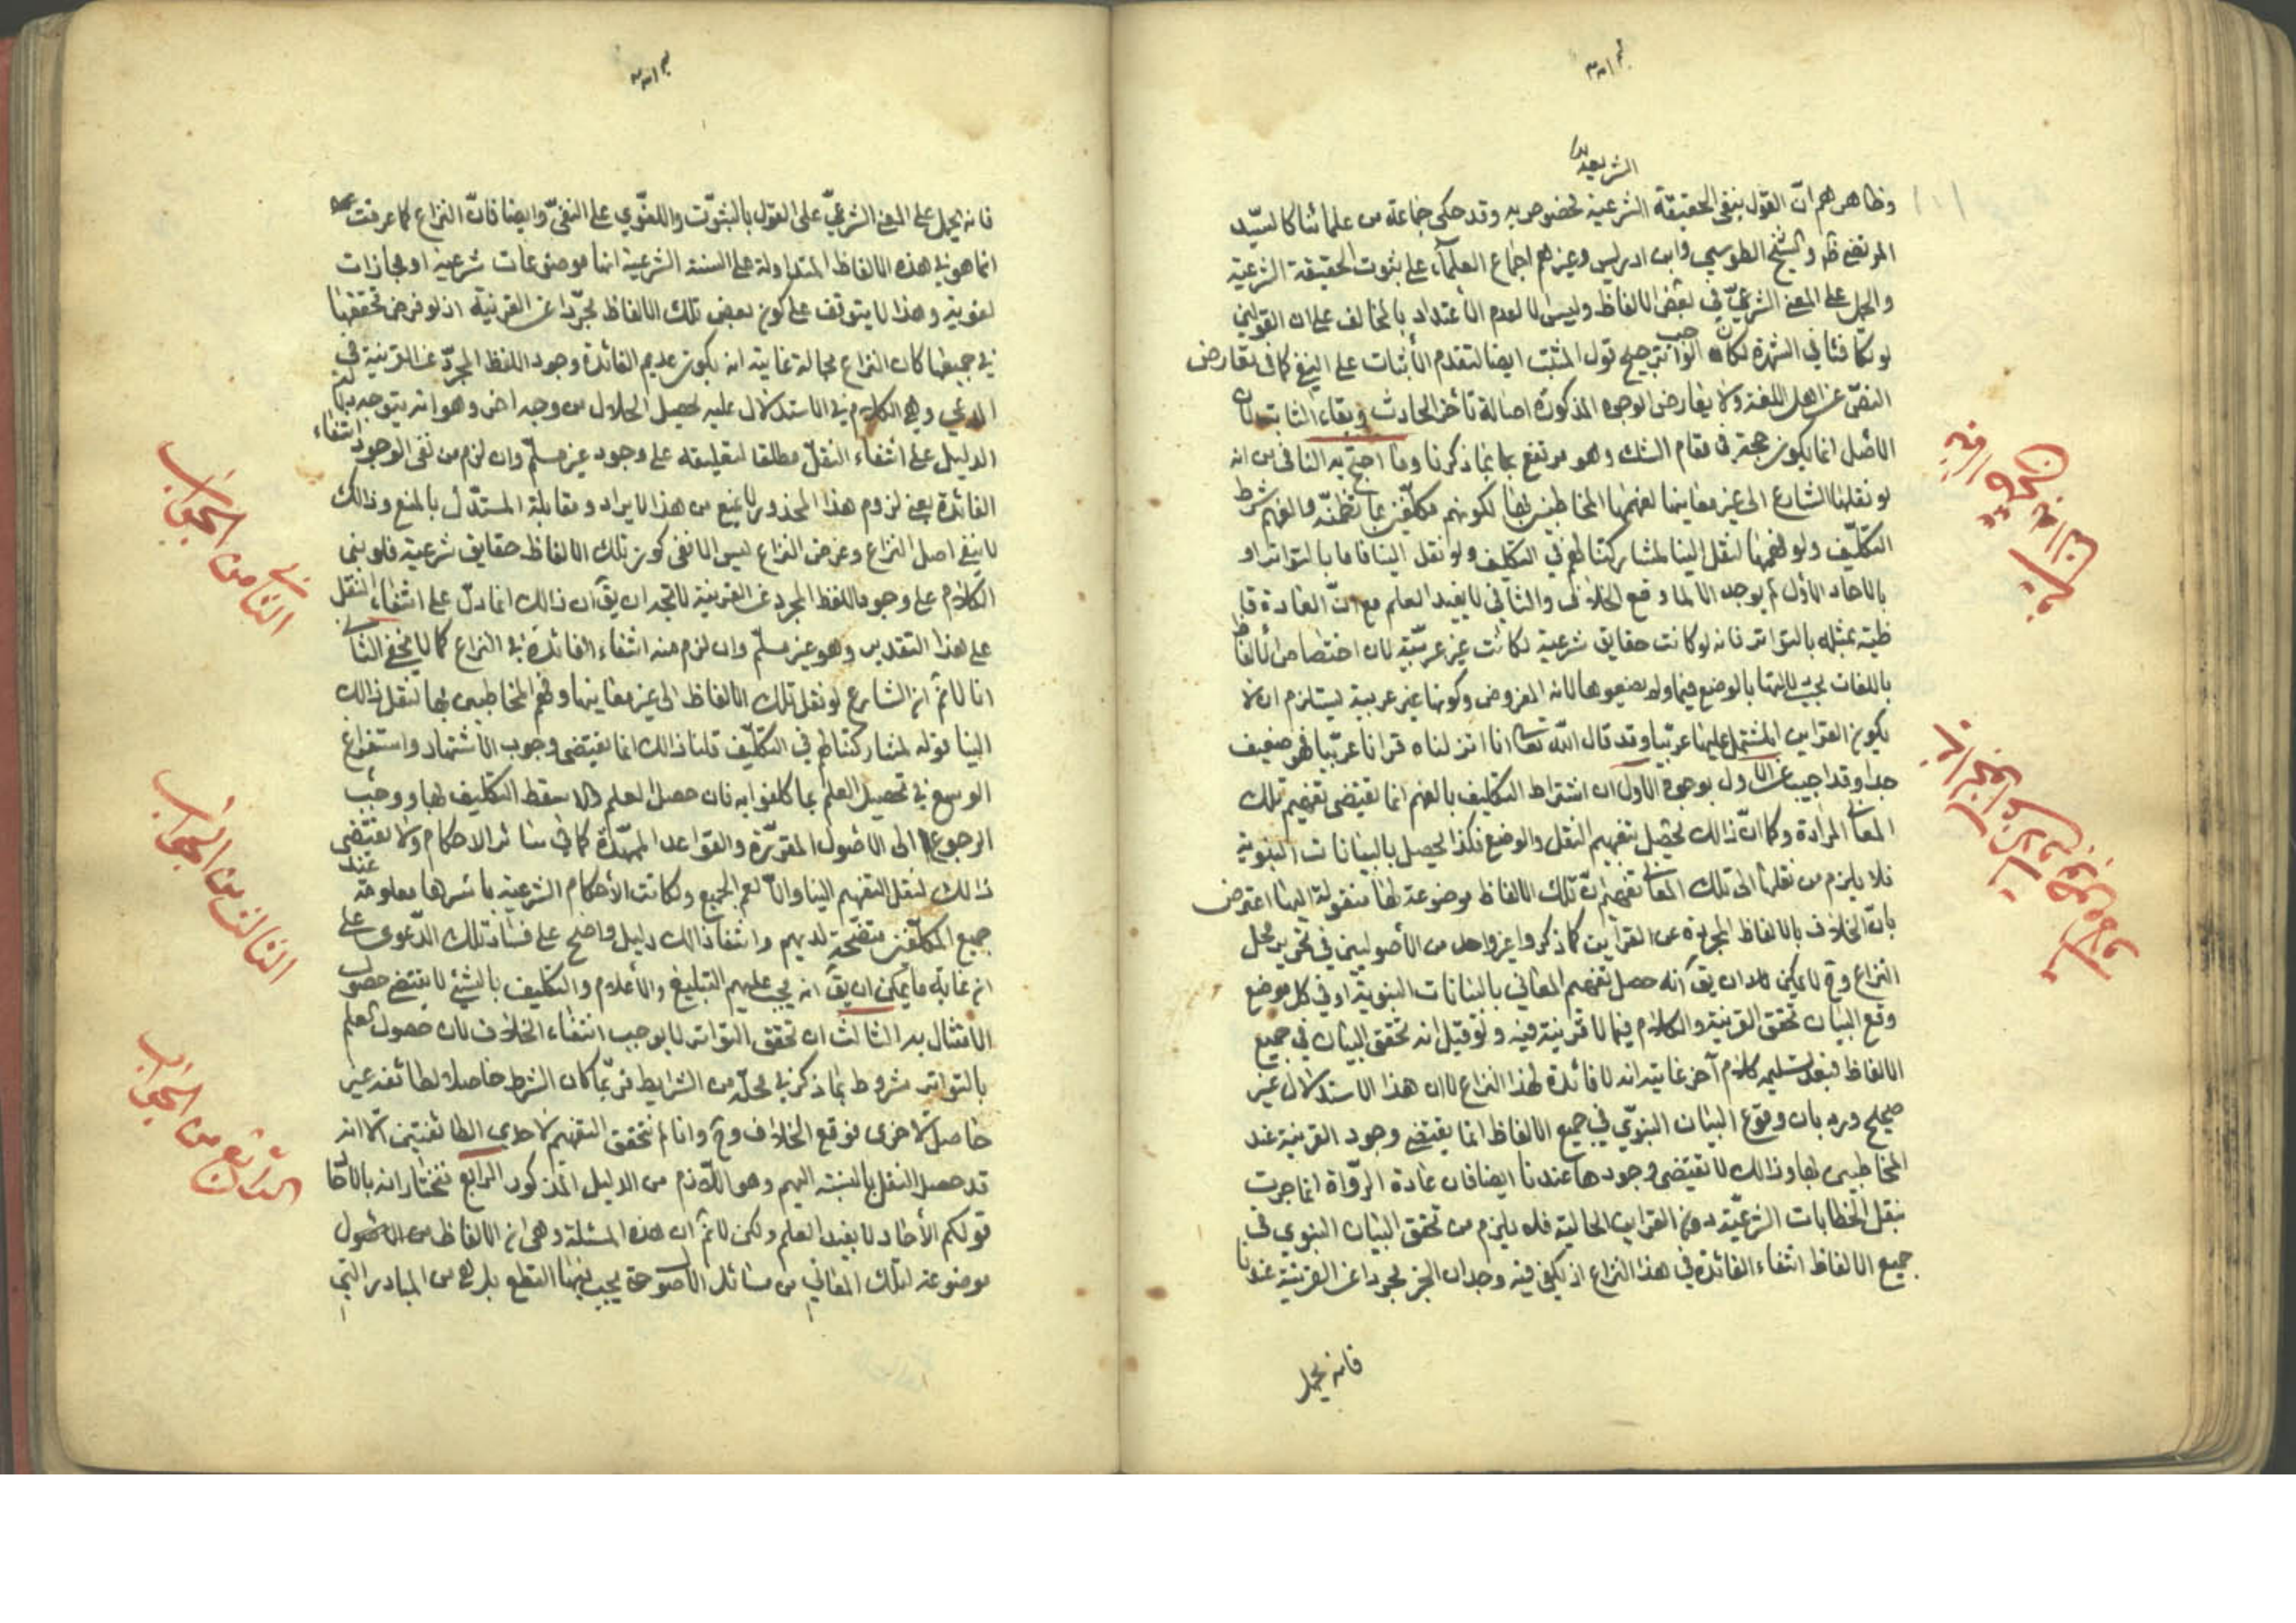 الشريعة
وظاهرهم ان القول بنفي الحقيقة الشرعية مخصوص به وقد حكى جماعة من علمائنا كالسيد
المرتضى والشيخ الطوسي وابن ادريس وغيرهم اجماع العلماء على ثبوت الحقيقة الشرعية
والحمل على المعنى الشرعي في بعض الالفاظ وليس الا لعدم الاعتداد بالمخالف على ان القولين
لو تكافئا في الشهرة لكان الواجب ترجيح قول المثبت ايضا لتقدم الاثبات على النفي كما في تعارض
النص عن اهل اللغة ولا يعارض الوجوه المذكورة اصالة تأخر الحادث وبقاء الثابت لان
الاصل انما يكون حجة في مقام الشك وهو مرتفع بما ذكرنا وما احتج به النافي من انه
لو نقلها الشارع الى غير معانيها لفهمها المخاطبين بها لكونهم مكلفين بما تظمنه والفهم شرط
التكليف ولو فهمها لنقل الينا لمشاركتنا لهم في التكليف ولو نقل الينا فاما بالتواتر او
بالاحاد الاول لم يوجد والا لما وقع الخلاف والثاني لا يفيد العلم مع ان العادة قا
ظية بمثله بالتواتر فانه لو كانت حقايق شرعية لكانت غير عربية لان اختصاص الالفاظ
باللغات بحسب دلالتها بالوضع فيها ولم يضعوها لانه المفروض وكونها غير عربية يستلزم ان لا
يكون القران المشتمل عليها عربيا وقد قال الله تعالى انا انزلناه قرانا عربيا فهو ضعيف
جدا وقد اجيب عن الاول بوجوه الاول ان اشتراط التكليف بالفهم انما يقتضي تفهيم تلك
المعاني المرادة وكما ان ذالك يحصل بتفهيم النقل والوضع فكذا يحصل بالبيانات النبوية
فلا يلزم من نقلها الى تلك المعاني تفهيم ان تلك الالفاظ موضوعة لها منقولة اليها اعترض
بان الخلاف بالالفاظ المجردة عن القراين كما ذكر واغير واحد من الاصوليين في تحرير محل
النزاع وح لا يمكن ان يق انه حصل تفهيم المعاني بالبيانات النبوية اذ في كل موضع
وقع البيان تحقق القرينة والكلام فيما لا قرينة فيه ولو قيل انه تحقق البيان في جميع
الالفاظ فبعد تسليمه كلام آخر غايته انه لا فائدة لهذا النزاع لا ان هذا الاستدلال غير
صحيح ورد بان وقوع البيان النبوي في جميع الالفاظ انما يقتضي وجود القرينة عند
المخاطبين بها وذالك لا يقتضي وجودها عندنا ايضا فان عادة الرواة انما جرت
بنقل الخطابات الشرعية دون القراين الحالية فلا يلزم من تحقق البيان النبوي في
جميع الالفاظ انتفاء الفائدة في هذا النزاع اذ يكفي فيه وجدان الخبر مجردا عن القرينة عندنا
فانه يحمل
فانه يحمل على المعنى الشرعي على القول بالثبوت واللغوي على النفي وايضا فان النزاع كما عرفت
انما هو في هذه الالفاظ المتداولة على السنة الشرعية انها موضوعات شرعية او مجازات
لغوية وهذا لا يتوقف على كون بعض تلك الالفاظ مجردا عن القرينة اذ لو فرض تحققها
في جميعها كان النزاع بحاله غايته انه يكون عديم الفائدة وجود اللفظ المجرد عن القرينة في
المدعي وفي الكلام في الاستدلال عليه لحصول الحلال من وجه اخر وهو انه يتوجه
الدليل على انتفاء النقل مطلقا لتعليقه على وجود غير مسلم وان لزم من نفي الوجود انتفاء
الفائدة يعني لزوم هذا المحذور لا يمنع من هذا الايراد ومقابلة المستدل بالمنع وذالك
لا ينفي اصل النزاع وغرض النزاع ليس الا نفي كون تلك الالفاظ حقايق شرعية فلو بنى
الكلام على وجود اللفظ المجرد عن القرينة لاتجه ان يق ان ذالك انما دل على انتفاء النقل
على هذا التقدير وهو غير مسلم وان لزم منه انتفاء الفائدة في النزاع كما لا يخفى الثاني
انا لا نم ان الشارع لو نقل تلك الالفاظ الى غير معانيها وفهم المخاطبين بها لنقل ذالك
الينا قوله لمشاركتنا لهم في التكليف قلنا ذالك انما يقتضي وجوب الاشتهاد واستفراغ
الوسع في تحصيل العلم بما كلفوا به فان حصل العلم والا سقط التكليف بها ووجب
الرجوع الى الاصول المقررة والقواعد الممهدة كما في سائر الاحكام ولا يقتضي
ذالك لنقل التفهيم الينا والا لعم الجميع ولكانت الاحكام الشرعية باسرها معلومة عند
جميع المكلفين متضحة لديهم وانتفاء ذالك دليل واضح على فساد تلك الدعوى على
ان غاية ما يمكن ان يق انه يجب عليهم التبليغ والاعلام والتكليف بالشيء لا يقتضي حصول
الامتثال به الثالث ان تحقق التواتر لا يوجب انتفاء الخلاف لان حصول العلم
بالتواتر مشروط بما ذكر في محله من الشرايط فربما كان الشرط حاصلا لطائفة غير
حاصل لاخرى فوقع الخلاف وح وانا لم نتحقق التفهيم لاحدى الطائفتين الا انه
قد حصل النقل بالنسبة اليهم وهو اللازم من الدليل المذكور الرابع نختار انه بالاحاد
قولكم الاحاد لا يفيد العلم ولكن لا نم ان هذه المسئلة وهي ان الالفاظ من الاصول
موضوعة لتلك المعاني من مسائل الاصول حتى يجب فيها القطع بل هي من المبادر التي
الثاني من الجواب
الثالث من الجواب
الرابع من الجواب